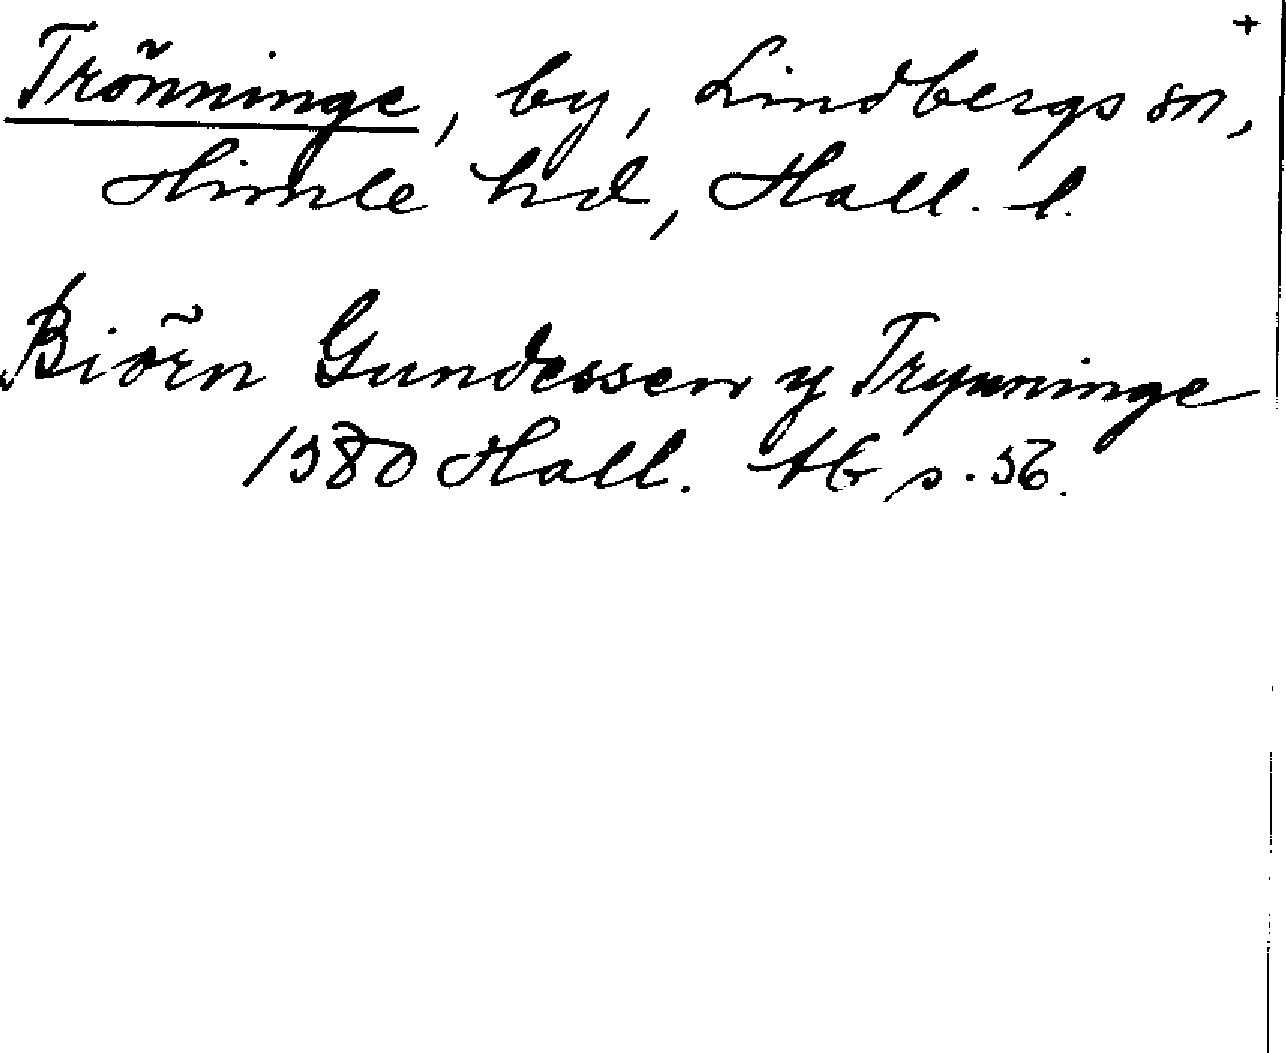 +
Trönninge, by, Lindbergs sn,
Himle hd, Hall. l.
Biörn Gundessen y Trynninge
1580 Hall. Ab s. 56.